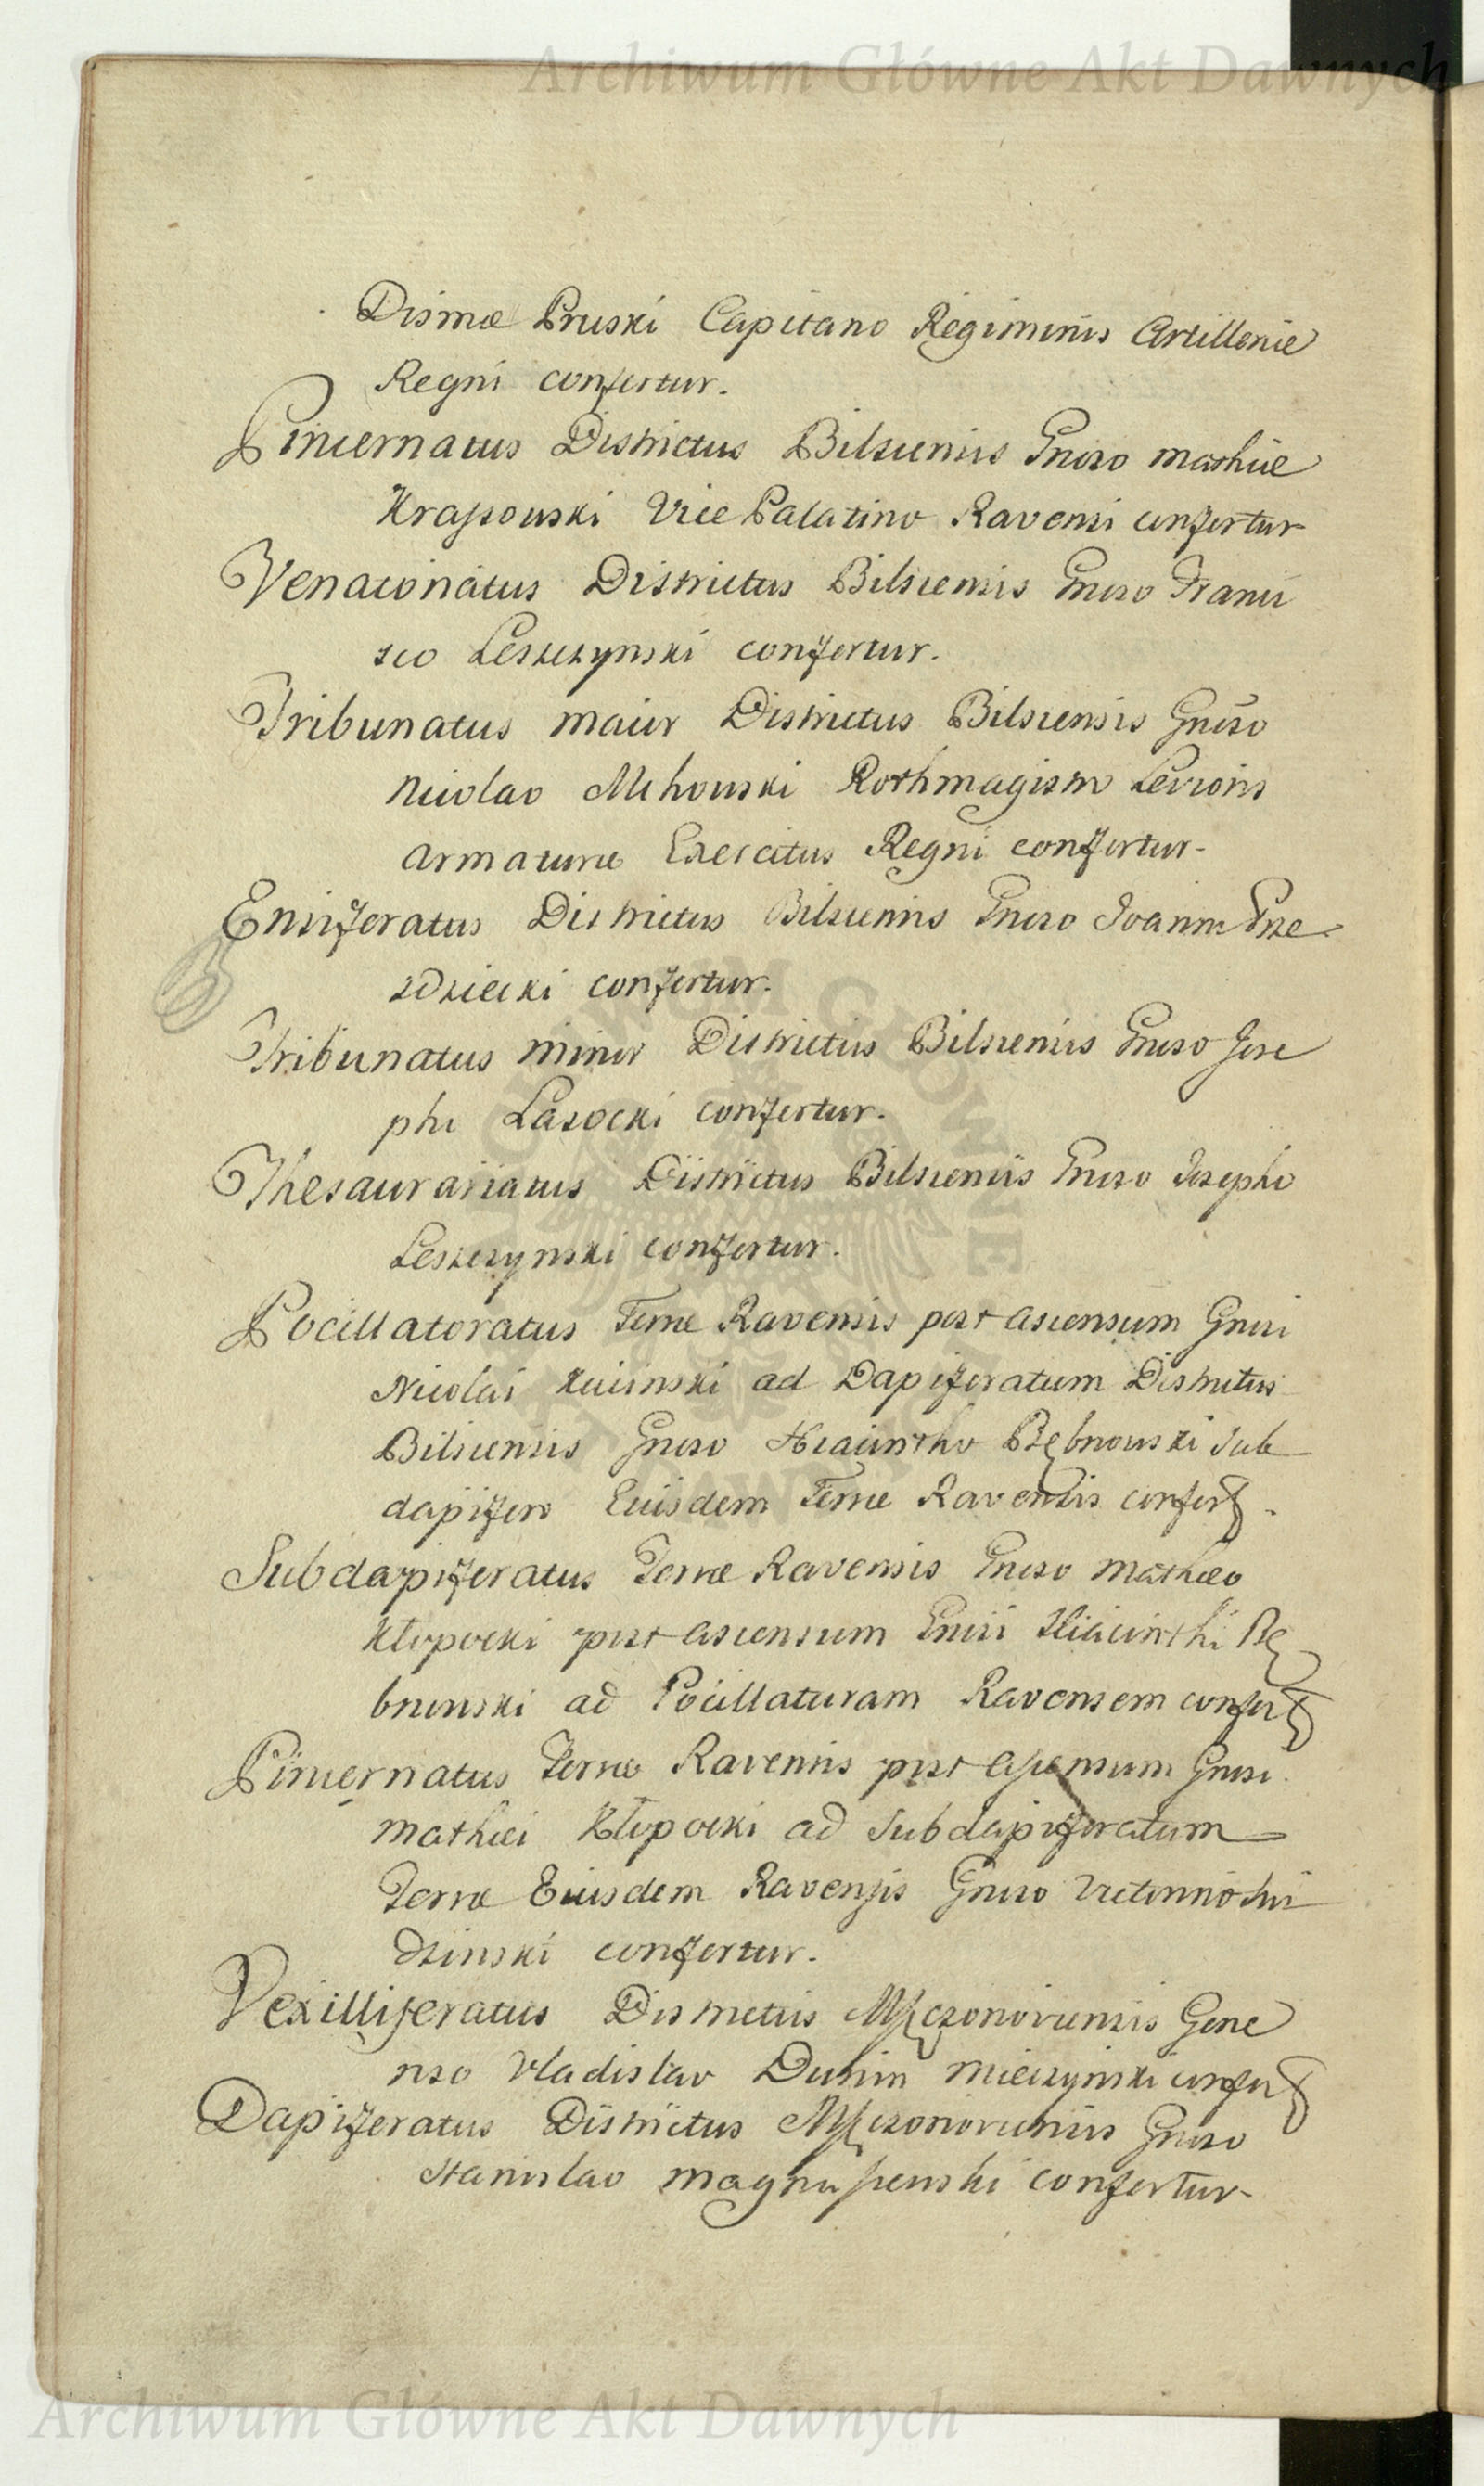 Archiwum Główne Akt Dawnych
Dismæ Pruski Capitano Regiminis Artilleriæ
Regni confertur.
Pincernatus Districtus Bilscensis Gnoso Mathiæ
Krassowski Vice Palatino Ravensi confertur
Venacionatus Districtus Bilscensis Gnoso Franci
sco Leszczynski confertur.
Tribunatus maior Districtus Bilscensis Gnoso
Nicolao Michowski Rothmagistro Levioris
Armaturæ Exercitus Regni confertur.
Ensiferatus Districtus Bilscensis Gnoso Joanni Prze
zdziecki confertur.
Tribunatus minor Districtus Bilscensis Gnoso Jose
pho Lasocki confertur.
Thesaurariatus Districtus Bilscensis Gnoso Josepho
Leszczynski confertur.
Pocillatoratus Terræ Ravensis post ascensum Gnosi
Nicolai ad Dapiferatum Districtus
Bilscensis Gnoso Hiacintho Bębnowski Sub
dapifero Eiusdem Terræ Ravensis confert.
Subdapiferatus Terræ Ravensis Gnoso Mathæo
Kłopocki post ascensum Gnosi Hiacinthi Bę
bnowski ad Pocillaturam Ravensem confert
Pincernatus Terræ Ravensis post Ascensum Gnosi
Mathæi Kłopocki ad Subdapiferatum
Terræ Eiusdem Ravensis Gnoso
dzinski confertur.
Vexilliferatus Districtus Mszczonoviensis Gene
roso Vladislao Dunin confert
Dapiferatus Districtus Mszczonoviensis Gnoso
Stanislao Magnuszewski confertur
Archiwum Główne Akt Dawnych